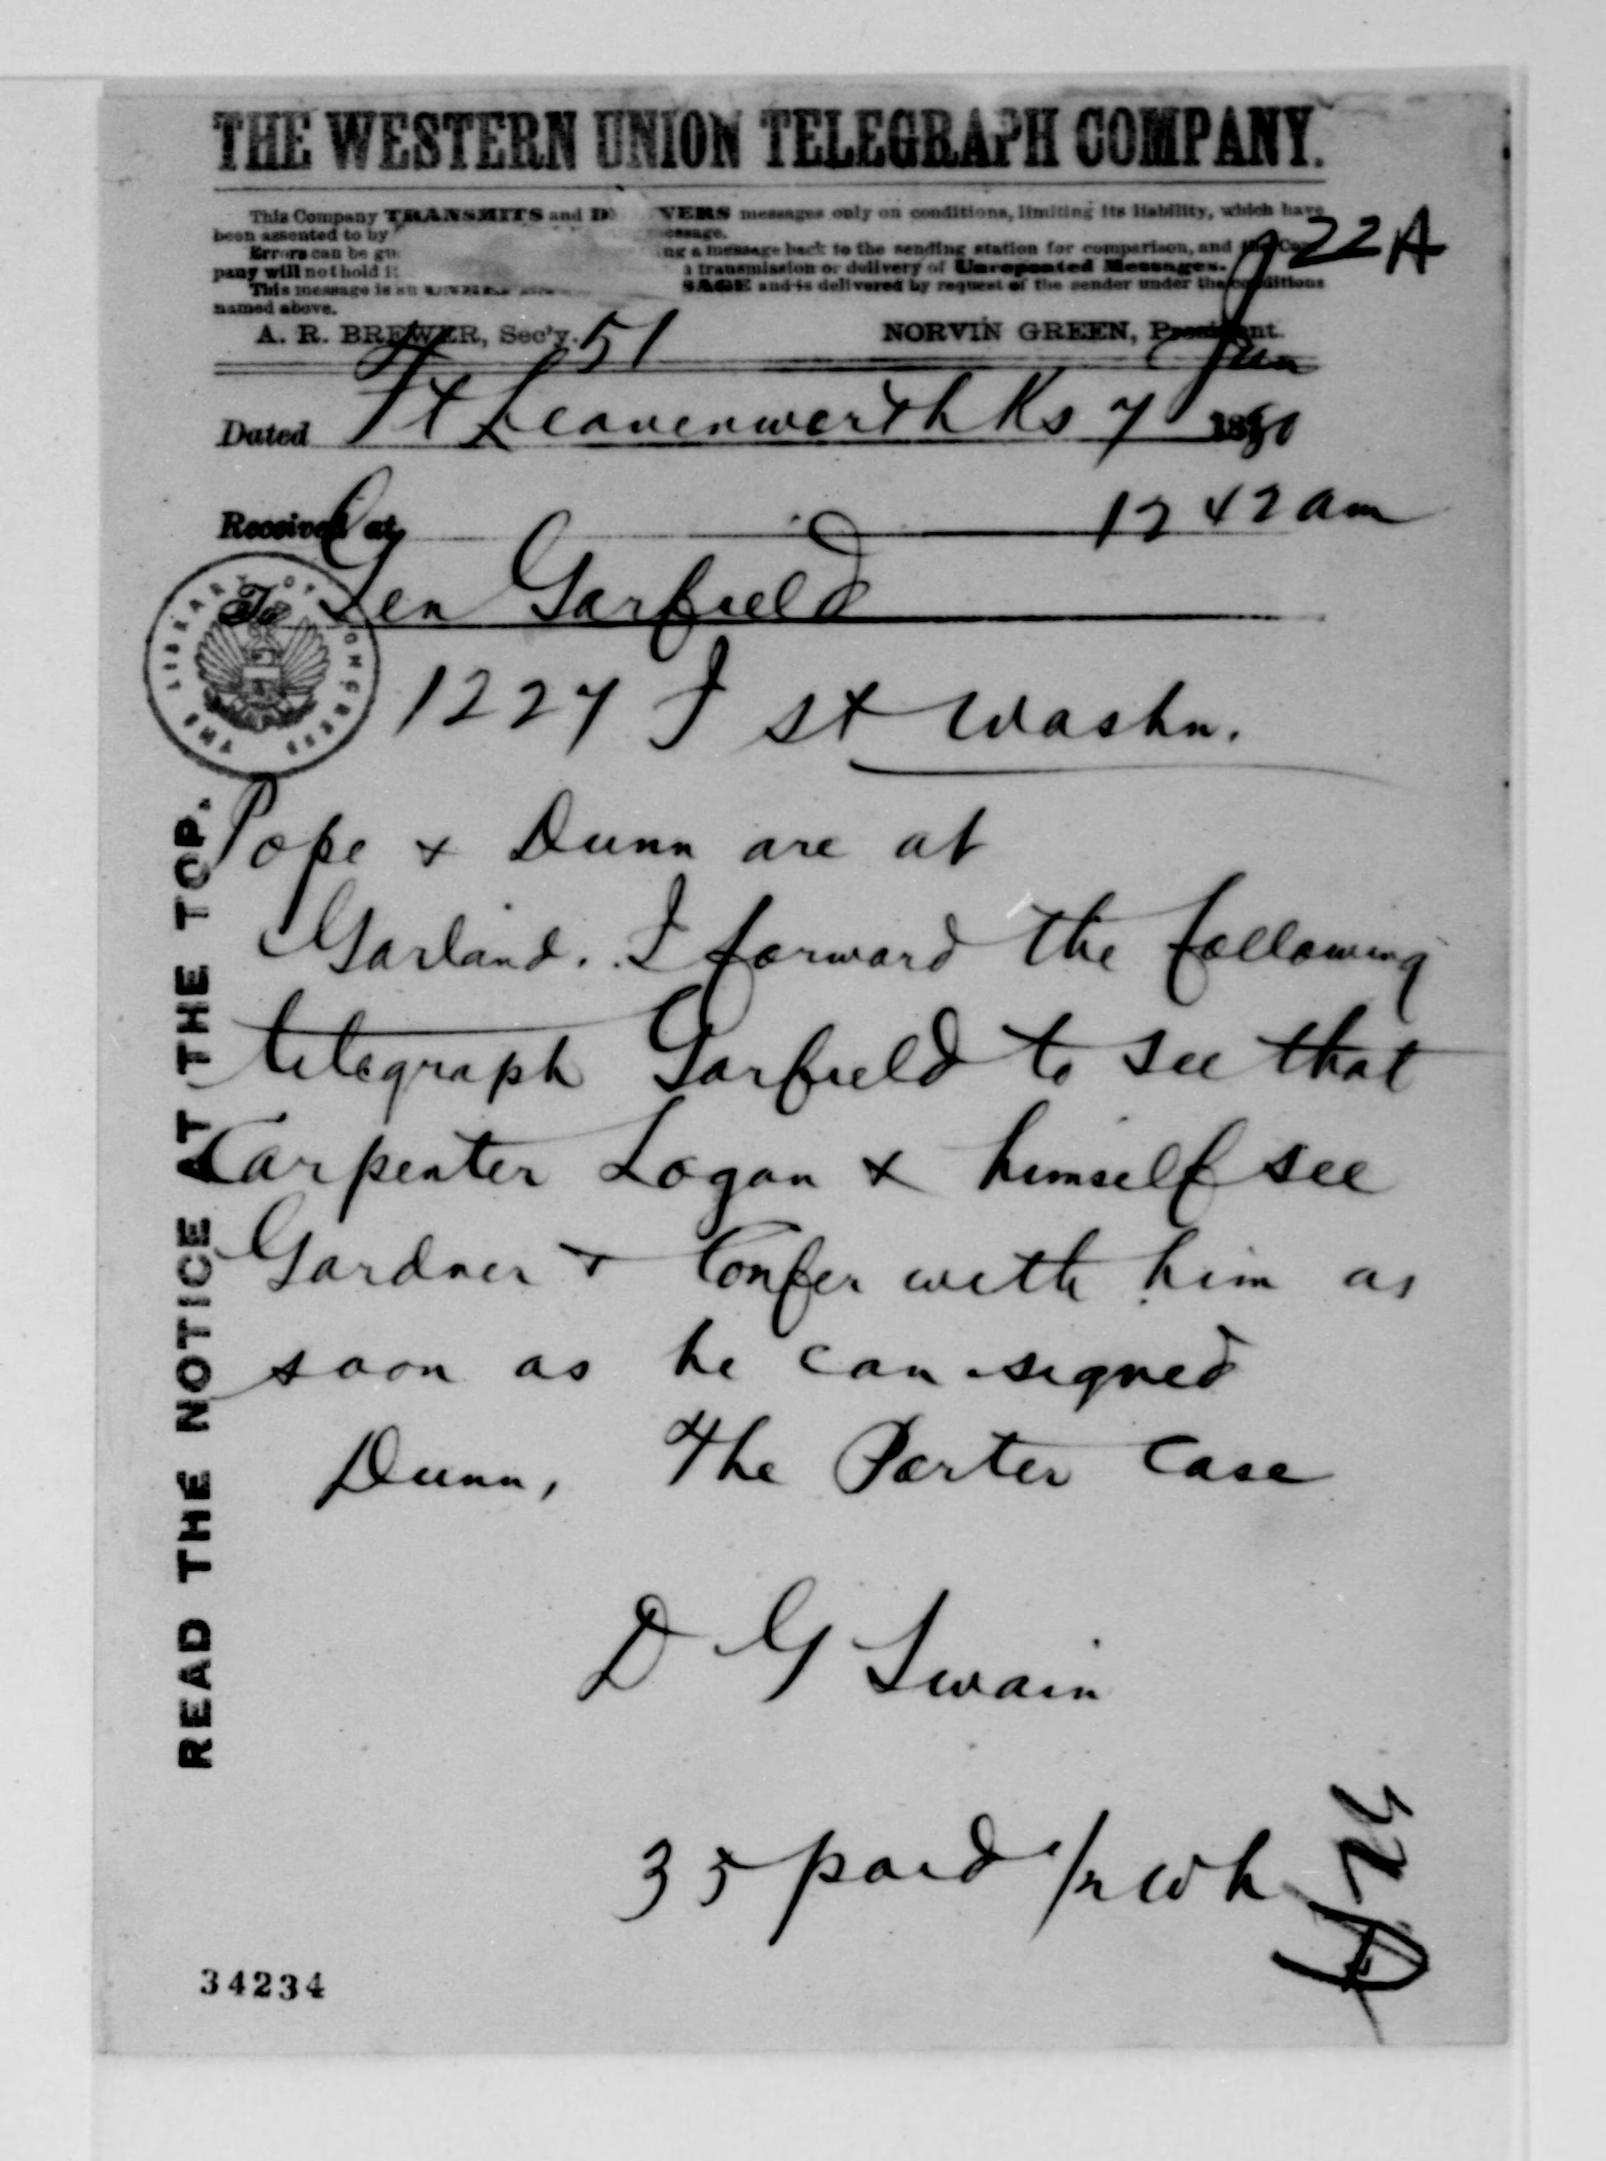 THE WESTERN UNION TELEGRAPH COMPANY.
This Company TRANSMITS and D VERS messages only on conditions, limiting its liability, which have
been assented to by essage.
Errors can be gu ng a message back to the sending station for comparison, and the Com
pany will not hold it transmission or delivery of Unrepeated Messages.
This message is an SAGE and is delivered by request of the sender under the conditions
named above.
A. R. BREWER, Sec'y. 51 NORVIN GREEN, President.
22 A
Jan
Dated Ft Leavenworth Ks 7 1880
Received at 12 42 am
To Gen Garfield
1227 I st Washn.
THE LIBRARY OF CONGRESS
READ THE NOTICE AT THE TOP.
Pope + Dunn are at
Garland. I forward the following
telegraph Garfield to see that
Carpenter Logan + himself see
Gardner + Confer with him as
soon as he can signed
Dunn, The Porter Case
D G Swain
35 paid
34234